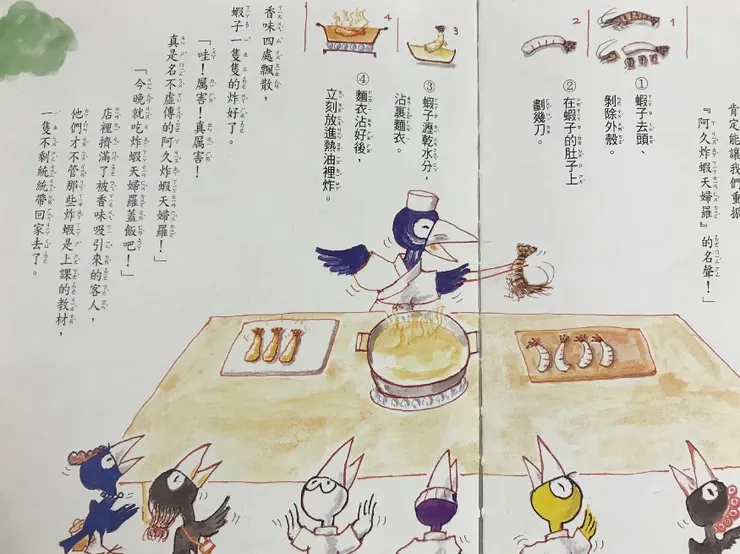 肯定能讓我們重振
『阿久炸蝦天婦羅』的名聲！」
1
2
3
4
① 蝦子去頭、
剝除外殼。
② 在蝦子的肚子上
劃幾刀。
③ 蝦子瀝乾水分，
沾裹麵衣。
④ 麵衣沾好後，
立刻放進熱油裡炸。
香味四處飄散，
蝦子一隻隻的炸好了。
「哇！厲害！真厲害！
真是名不虛傳的阿久炸蝦天婦羅！」
「今晚就吃炸蝦天婦羅蓋飯吧！」
店裡擠滿了被香味吸引來的客人，
他們才不管那些炸蝦是上課的教材，
一隻不剩統統帶回家去了。